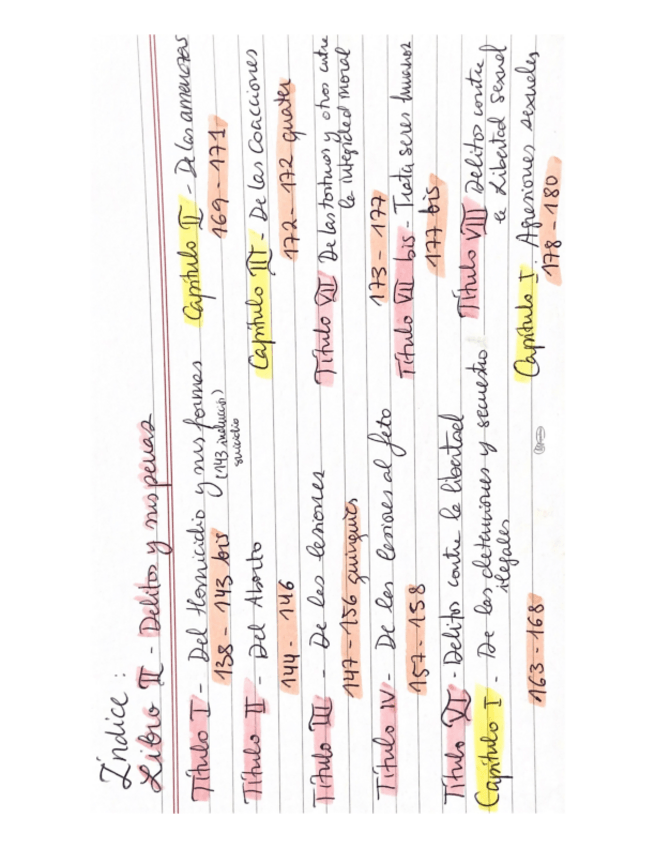 Índice:
Libro II - Delitos y sus penas
Título I - Del Homicidio y sus formas
138 - 143 bis (143 inducción)
suicidio
Título II - Del Aborto
144 - 146
Título III - De las lesiones
147 - 156 quinquies
Título IV - De las lesiones al feto
157 - 158
Título VI - Delitos contra la libertad
Capítulo I - De las detenciones y secuestro
ilegales
163 - 168
Capítulo II - De las amenazas
169 - 171
Capítulo III - De las Coacciones
172 - 172 quater
Título VII De las torturas y otros contra
la integridad moral
173 - 177
Título VII bis - Trata seres humanos
177 bis
Título VIII Delitos contra
la Libertad sexual
Capítulo I. Agresiones sexuales
178 - 180